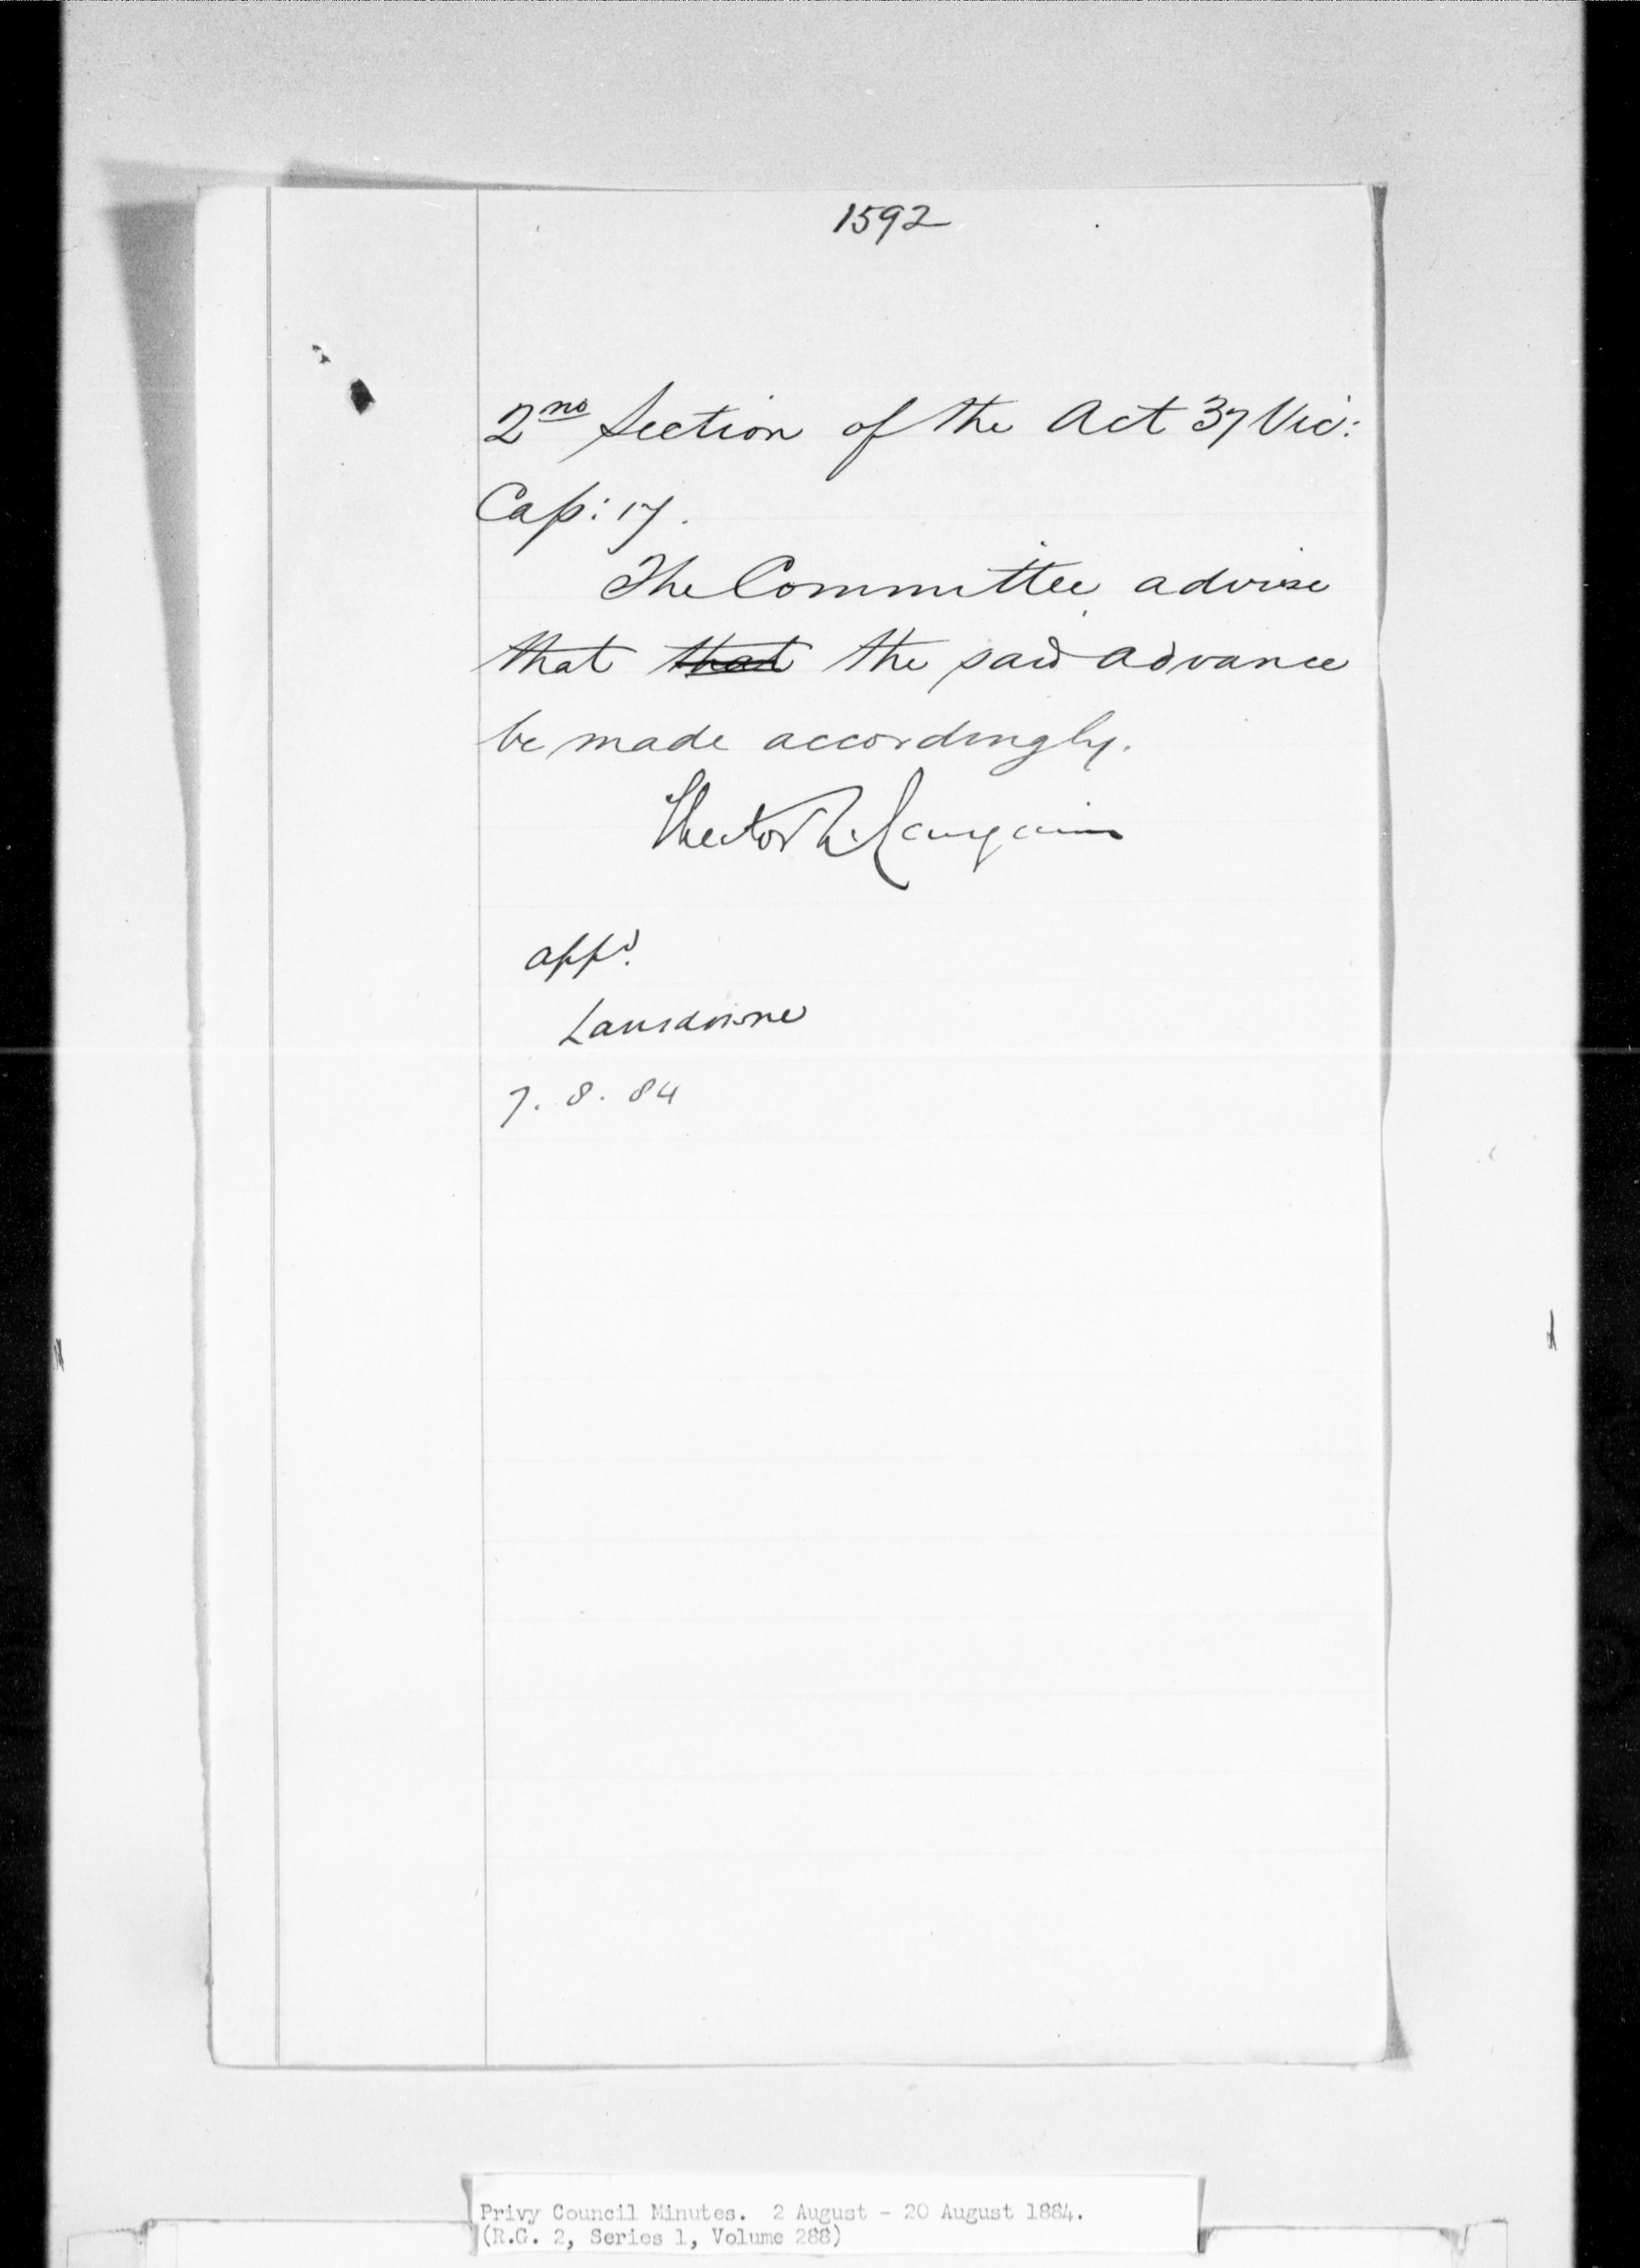 1592
2nd Section of the Act 37 Vic:
Cap: 17.
The Committee advise
that that the said advance
be made accordingly.
Hector L. Langevin
appd.
Lansdowne
7. 8. 84
Privy Council Minutes. 2 August - 20 August 1884.
(R.G. 2, Series 1, Volume 288)